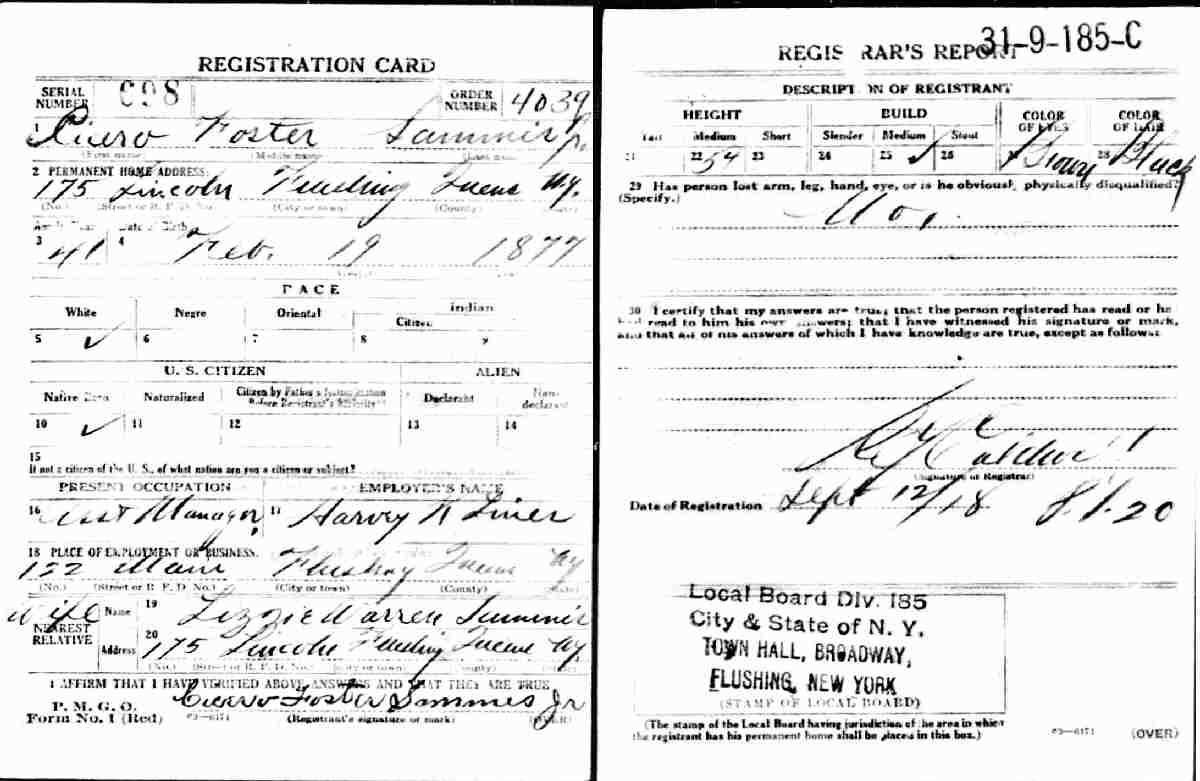 REGISTRATION CARD
SERIAL NUMBER 698 ORDER NUMBER 4039
1 Cicero Foster Sammis Jr.
(First name) (Middle name) (Last name)
2 PERMANENT HOME ADDRESS:
175 Lincoln Flushing Queens NY.
(No.) (Street or R. F. D. No.) (City or town) (County) (State)
Age in Years Date of Birth
3 41 4 Feb. 19 1877
RACE
White Negro Oriental Indian
Citizen
5 ✓ 6 7 8 9
U. S. CITIZEN ALIEN
Native Born Naturalized Citizen by Father's Naturalization Before Registrant's Majority Declarant Non-declarant
10 ✓ 11 12 13 14
15
If not a citizen of the U. S., of what nation are you a citizen or subject?
PRESENT OCCUPATION EMPLOYER'S NAME
16 Asst Manager 17 Harvey
18 PLACE OF EMPLOYMENT OR BUSINESS:
122 Main Flushing Queens NY
(No.) (Street or R. F. D. No.) (City or town) (County) (State)
Wife Name 19 Lizzie Warren Sammis
NEAREST RELATIVE
Address 20 175 Lincoln Flushing Queens NY.
(No.) (Street or R. F. D. No.) (City or town) (County) (State)
I AFFIRM THAT I HAVE VERIFIED ABOVE ANSWERS AND THAT THEY ARE TRUE
P. M. G. O.
Form No. 1 (Red) 03—6171 Cicero Foster Sammis Jr
(Registrant's signature or mark) (OVER)
31-9-185-C
REGISTRAR'S REPORT
DESCRIPTION OF REGISTRANT
HEIGHT BUILD COLOR OF EYES COLOR OF HAIR
Tall Medium Short Slender Medium Stout
21 22 23 24 25 ✓ 26 27 Brown 28 Black
29 Has person lost arm, leg, hand, eye, or is he obviously physically disqualified?
(Specify.)
No.
30 I certify that my answers are true; that the person registered has read or has
had read to him his own answers; that I have witnessed his signature or mark,
and that all of his answers of which I have knowledge are true, except as follows:
(Signature of Registrar)
Date of Registration Sept 12/18
Local Board Div. 185
City & State of N. Y.
TOWN HALL, BROADWAY,
FLUSHING, NEW YORK
(STAMP OF LOCAL BOARD)
(The stamp of the Local Board having jurisdiction of the area in which
the registrant has his permanent home shall be placed in this box.)
03—6171 (OVER)